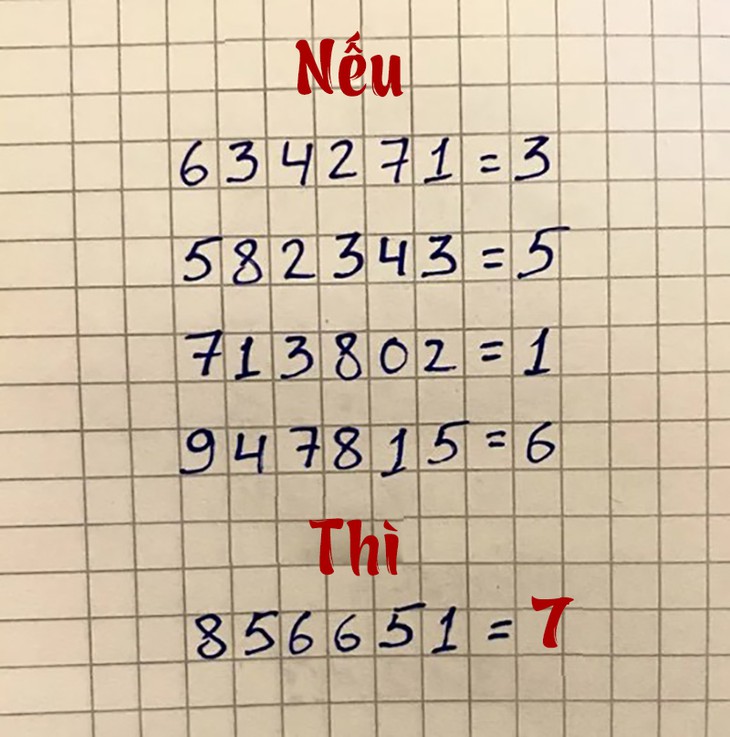 Nếu
634271 = 3
582343 = 5
713802 = 1
947815 = 6
Thì
856651 = 7